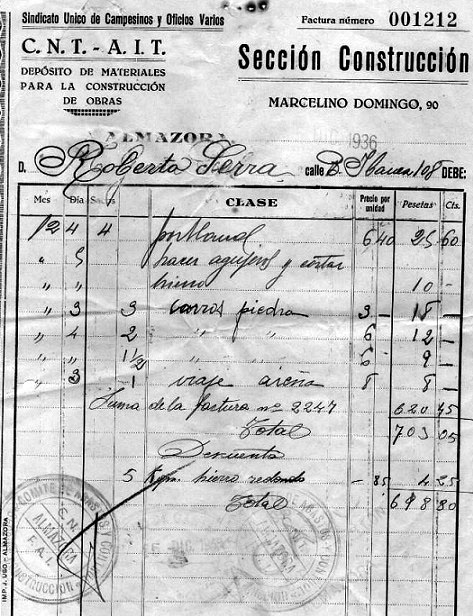 Sindicato Unico de Campesinos y Oficios Varios
C. N. T. - A. I. T.
DEPÓSITO DE MATERIALES
PARA LA CONSTRUCCIÓN
DE OBRAS
Factura número 001212
Sección Construcción
MARCELINO DOMINGO, 90
ALMAZORA 1936
D. Roberta Serra calle B. Ibanez 108 DEBE:
Mes Día Sacos CLASE Precio por unidad Pesetas Cts.
12 4 4 portland 6 40 25 60
" 5 hacer agujeros y cortar
" " hierro 10 -
" 3 3 carros piedra 3 - 18 -
" 4 2 " " 6 12 -
" " 1 1/2 " " 6 9 -
" 3 1 viaje arena 8 8 -
Suma de la factura nº 2247 620 45
Total 703 05
Descuento
5 Kgm. hierro redondo - 85 4 25
Total 698 80
COMITE
ALMAZORA
C. N. T.
F. A. I.
CONSTRUCCION
IMP. J. USO - ALMAZORA